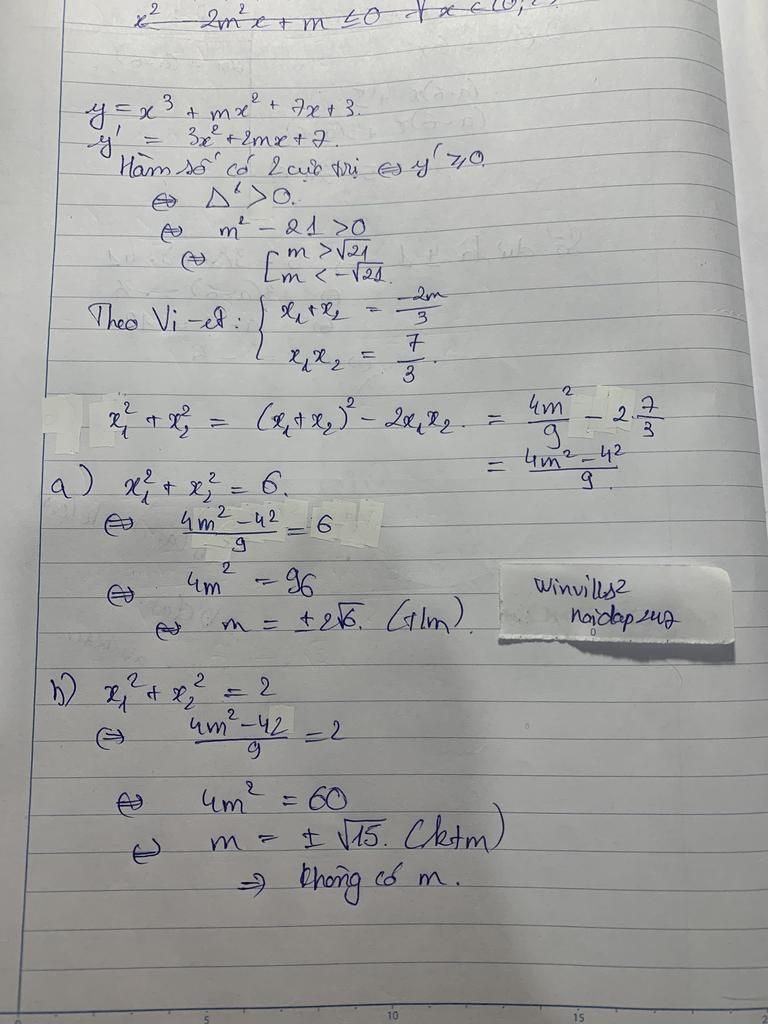 x² - 2m²x + m ≤ 0 ∀x ∈ (0;
y = x³ + mx² + 7x + 3.
y' = 3x² + 2mx + 7.
Hàm số có 2 cực trị ⇔ y' ≥ 0
⇔ Δ' > 0.
⇔ m² - 21 > 0
⇔ [ m > √21
m < -√21.
Theo Vi-et: { x₁ + x₂ = -2m/3
x₁x₂ = 7/3.
x₁² + x₂² = (x₁ + x₂)² - 2x₁x₂. = 4m²/9 - 2.7/3
= (4m² - 42)/9.
a) x₁² + x₂² = 6.
⇔ (4m² - 42)/9 = 6
⇔ 4m² = 96
⇔ m = ±2√6. (t/m)
winvills2
hoidap247
b) x₁² + x₂² = 2
⇔ (4m² - 42)/9 = 2
⇔ 4m² = 60
⇔ m = ±√15. (ktm)
⇒ không có m.
5 10 15